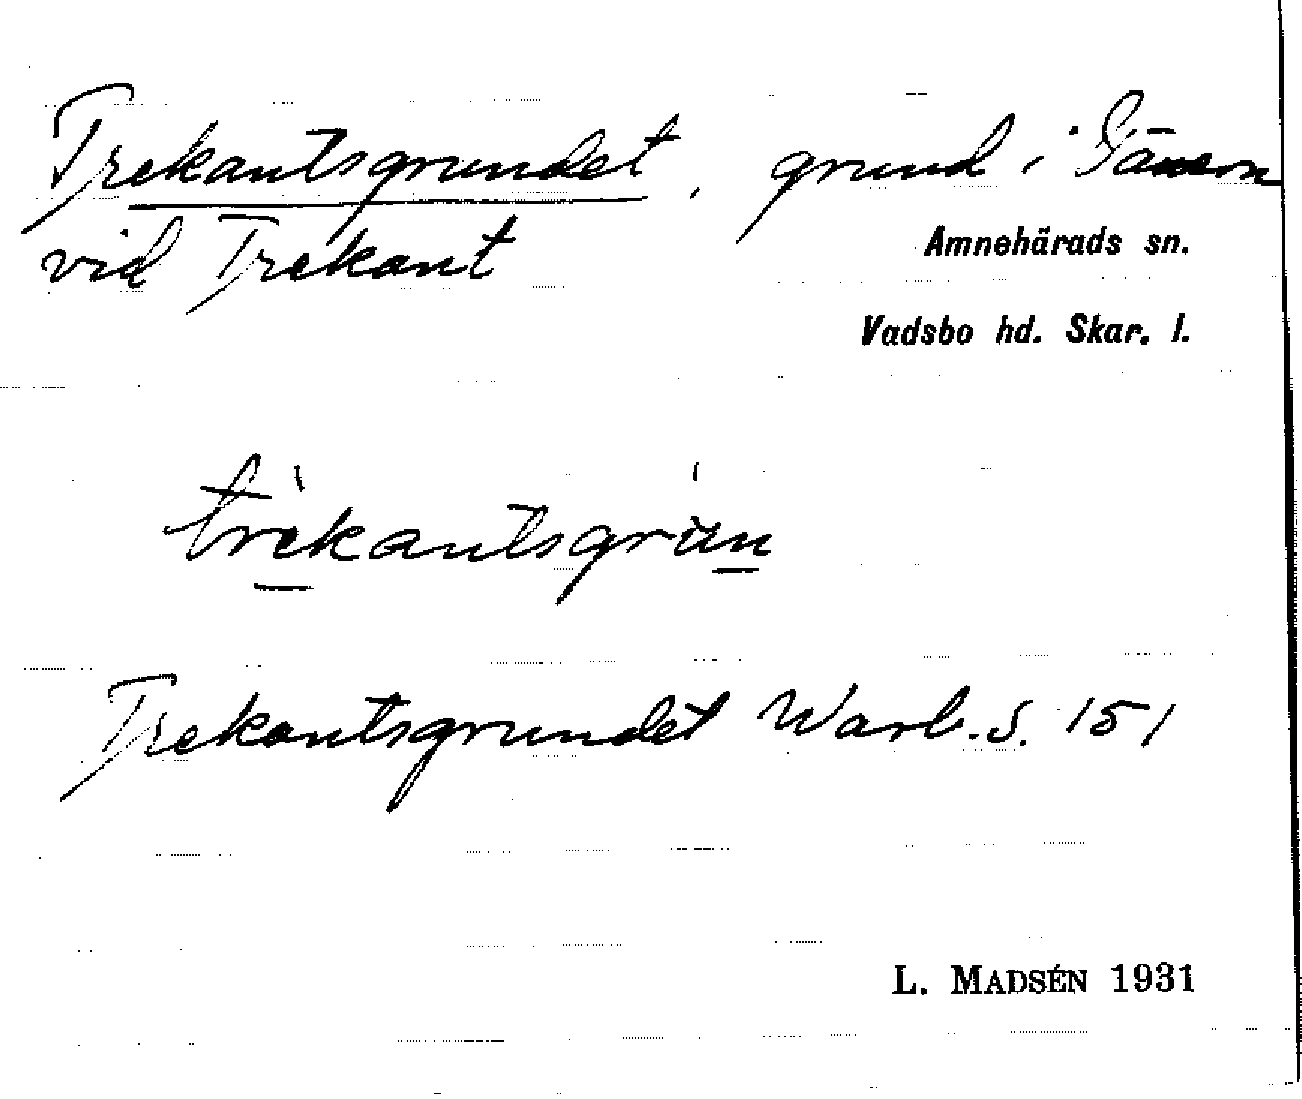 Trekantsgrundet, grund i
vid Trekant
Amnehärads sn.
Vadsbo hd. Skar. l.
trèkantsgrún
Trekantsgrundet Warb. S. 151
L. MADSÉN 1931